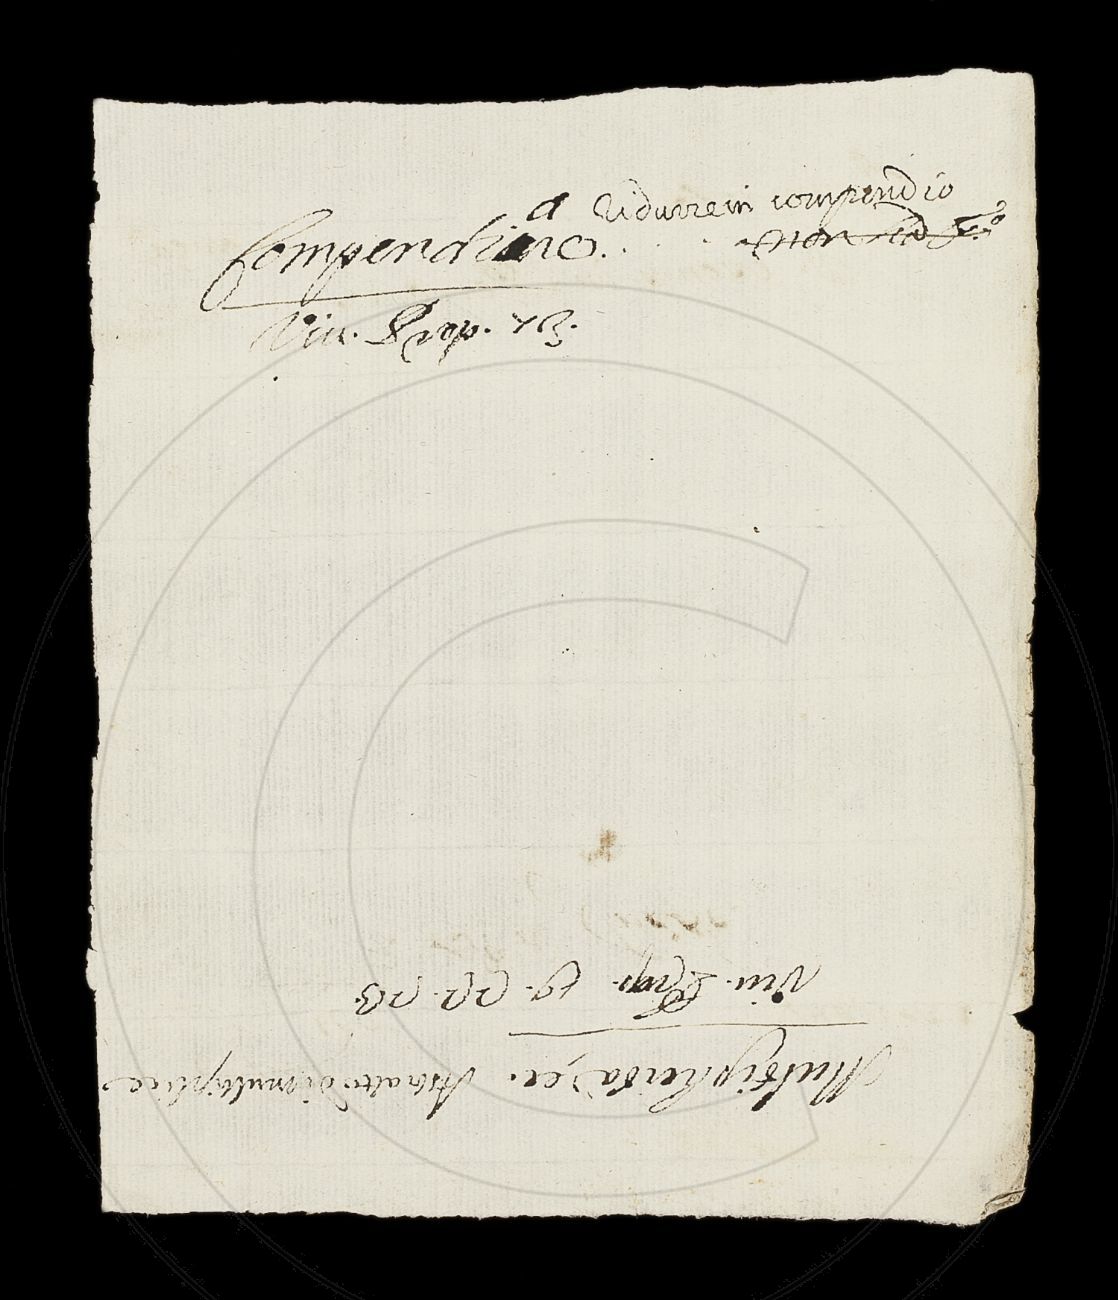 Compendiare. . . . Ridurre in compendio
Viv. Prop. 73.
Multiplicità, ec. Astratto di multiplice
Viv. Prop. 19. 22. 23.